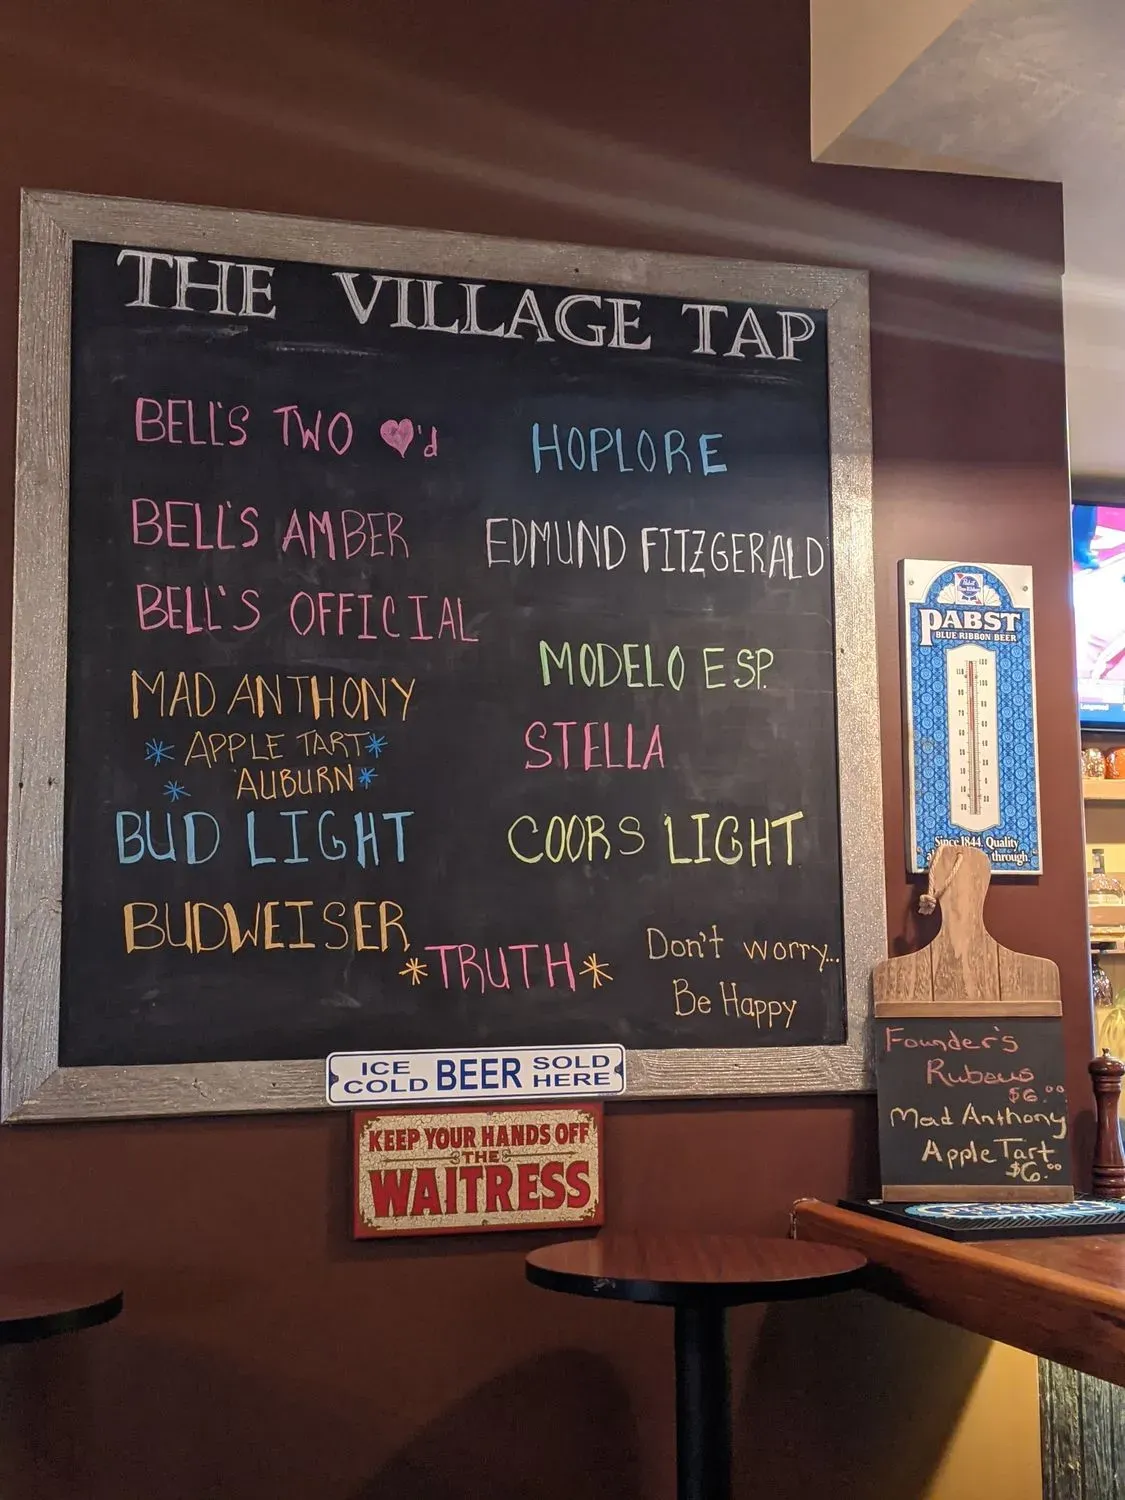 THE VILLAGE TAP
BELL'S TWO ♥'d
BELL'S AMBER
BELL'S OFFICIAL
MAD ANTHONY
* APPLE TART *
* AUBURN *
BUD LIGHT
BUDWEISER
*TRUTH*
HOPLORE
EDMUND FITZGERALD
MODELO ESP.
STELLA
COORS LIGHT
Don't worry...
Be Happy
ICE COLD BEER SOLD HERE
KEEP YOUR HANDS OFF
THE
WAITRESS
PABST
BLUE RIBBON BEER
Since 1844. Quality
through.
Founder's
Rubaus
$6.00
Mad Anthony
Apple Tart
$6.00